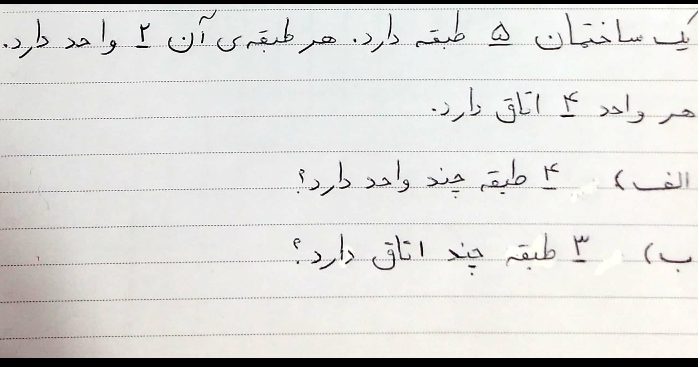 یک ساختمان ۵ طبقه دارد. هر طبقه‌ی آن ۲ واحد دارد.
هر واحد ۴ اتاق دارد.
الف) ۴ طبقه چند واحد دارد؟
ب) ۳ طبقه چند اتاق دارد؟